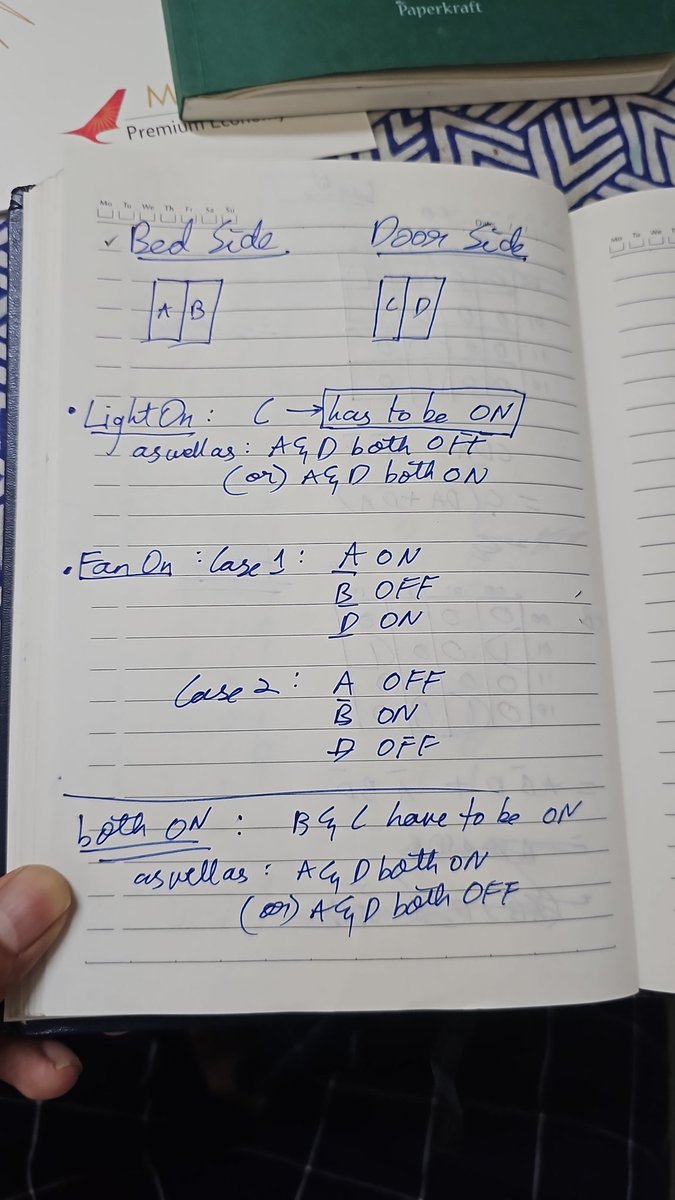 Paperkraft
M
Premium Economy
Mo Tu We Th Fr Sa Su
Mo Tu We T
✓ Bed Side
Door Side
A B
C D
• Light On : C → has to be ON
aswellas : A & D both OFF
(or) A & D both ON
• Fan On : Case 1 : A ON
B OFF
D ON
Case 2 : A OFF
B ON
D OFF
both ON : B & C have to be ON
aswellas : A & D both ON
(or) A & D both OFF